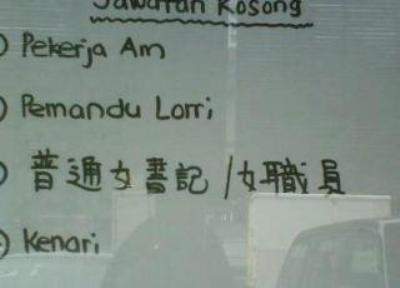 Jawatan Kosong
) Pekerja Am
) Pemandu Lorri
) 普通女書記/女職員
) Kenari